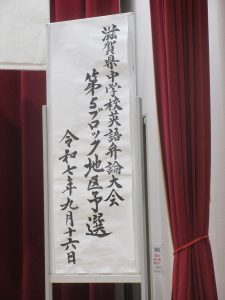 滋賀県中学校英語弁論大会
第5ブロック地区予選
令和七年九月十六日